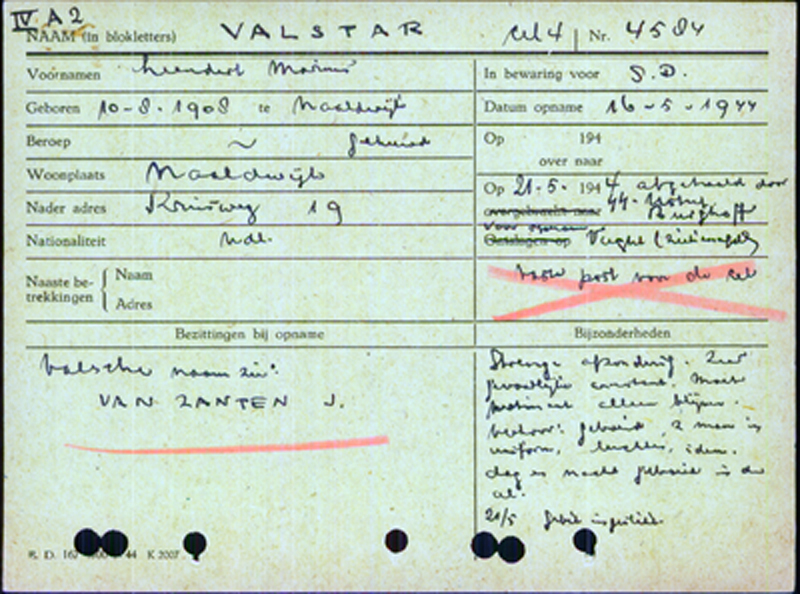 IV A 2
NAAM (in blokletters) VALSTAR cel 4 Nr. 4584
Voornamen Leendert Marinus
In bewaring voor S.D.
Geboren 10-8-1908 te Naaldwijk
Datum opname 16-5-1944
Beroep ~ geboeid
Op 194
over naar
Woonplaats Naaldwijk
Op 21-5-1944 afgehaald door
Nader adres Kruisweg 19
overgebracht naar
Nationaliteit Ndl.
Ontslagen op Vught
Naaste betrekkingen { Naam
Adres
post voor de cel
Bezittingen bij opname
Bijzonderheden
Valsche naam zie:
VAN ZANTEN J.
Strenge afzondering. Zeer
gevaarlijke arrestant. Moet
alleen blijven.
Verhoor: geboeid, 2 man in
uniform, idem.
dag en nacht geboeid in de
cel.
21/5
K 2007